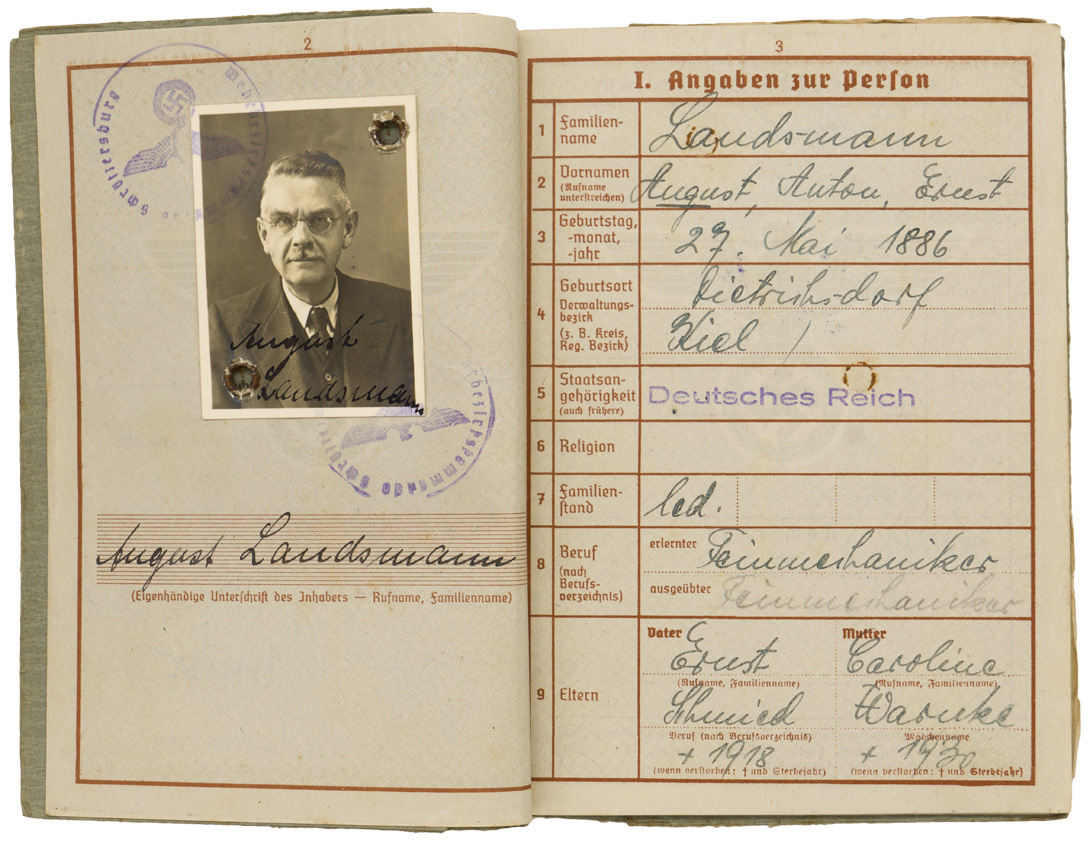 2
August
Landsmann
August Landsmann
(Eigenhändige Unterschrift des Inhabers — Rufname, Familienname)
3
I. Angaben zur Person
1 Familien-
name
Landsmann
2 Vornamen
(Rufname
unterstreichen)
August, Anton, Ernst
3 Geburtstag,
-monat,
-jahr
27. Mai 1886
4 Geburtsort
Verwaltungs-
bezirk
(z. B. Kreis,
Reg. Bezirk)
Dietrichsdorf
Kiel /
5 Staatsan-
gehörigkeit
(auch frühere)
Deutsches Reich
6 Religion
7 Familien-
stand
led.
8 Beruf
(nach
Berufs-
verzeichnis)
erlernter Feinmechaniker
ausgeübter Feinmechaniker
9 Eltern
Vater Ernst
(Rufname, Familienname)
Schmied
Beruf (nach Berufsverzeichnis)
+ 1918
(wenn verstorben: † und Sterbejahr)
Mutter Caroline
(Rufname, Familienname)
Warnke
Mädchenname
+ 1930
(wenn verstorben: † und Sterbejahr)